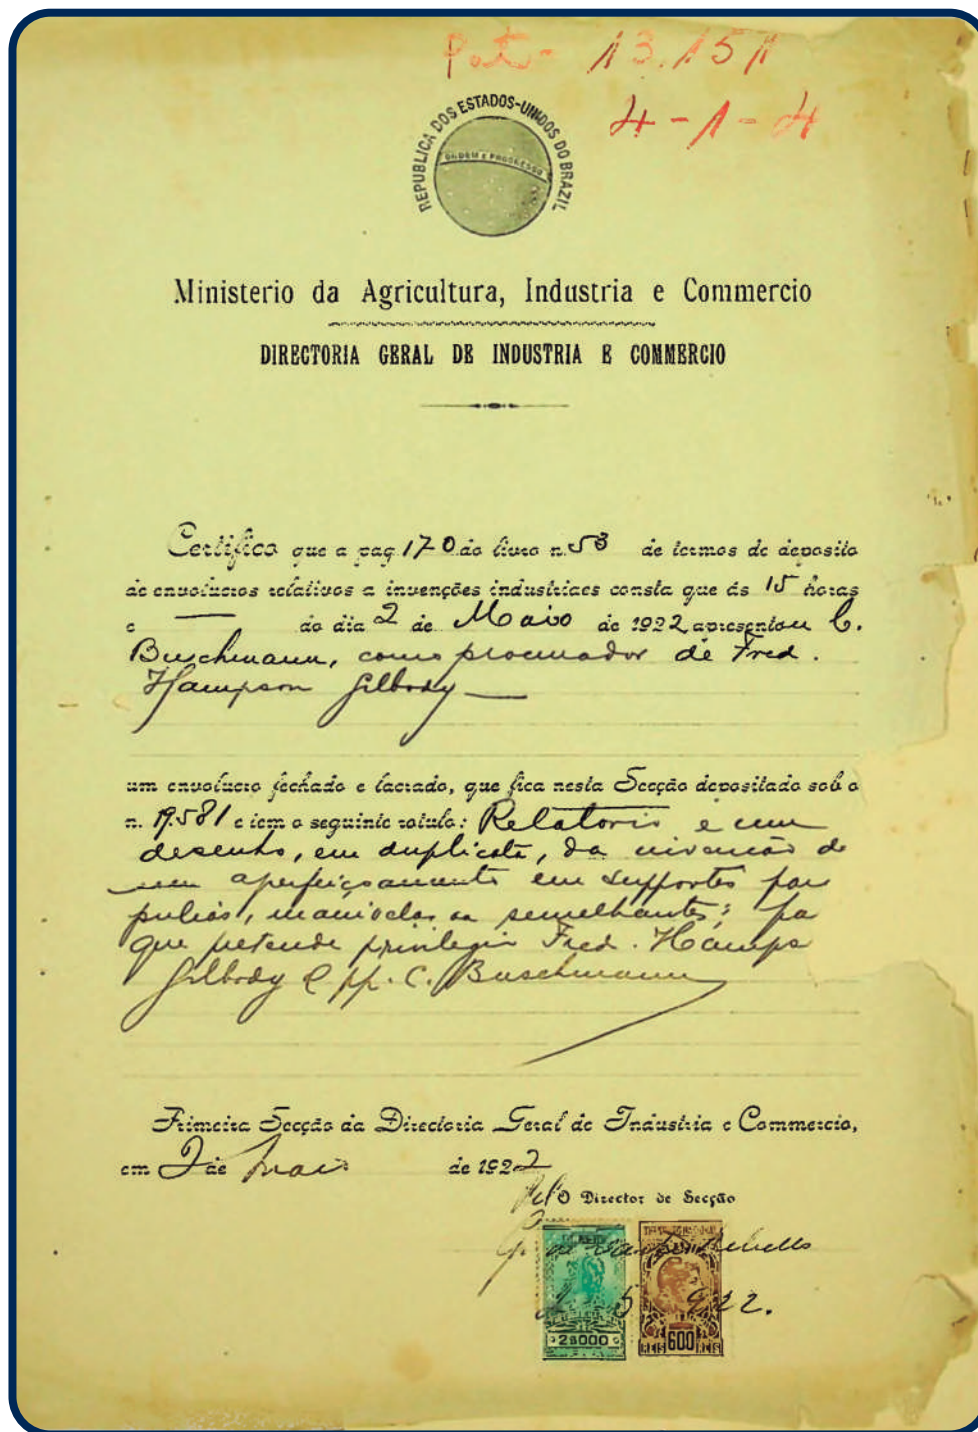 Pat- 13.151
4-1-4
REPUBLICA DOS ESTADOS-UNIDOS DO BRAZIL
ORDEM E PROGRESSO
Ministerio da Agricultura, Industria e Commercio
DIRECTORIA GERAL DE INDUSTRIA E COMMERCIO
Certifico que a pag 170 do livro n. 53 de termos de deposito
de envolucros relativos a invenções industriaes consta que ás 15 horas
e — do dia 2 de Maio de 1922 apresentou C.
Buschmann, como procurador de Fred.
Hampson Gilbody —
um envolucro fechado e lacrado, que fica nesta Secção depositado sob o
n. 19.581 e tem o seguinte rotulo: Relatorio e um
desenho, em duplicata, da invenção de
um aperfeiçoamento em supportes par
pulias, manivelas ou semelhantes; pa
que pretende privilegio Fred. Hamps
Gilbody e pp. C. Buschmann
Primeira Secção da Directoria Geral de Industria e Commercio,
em 2 de Maio de 1922
Pelo Director de Secção
2 5 922.
2$000
REIS 600 REIS